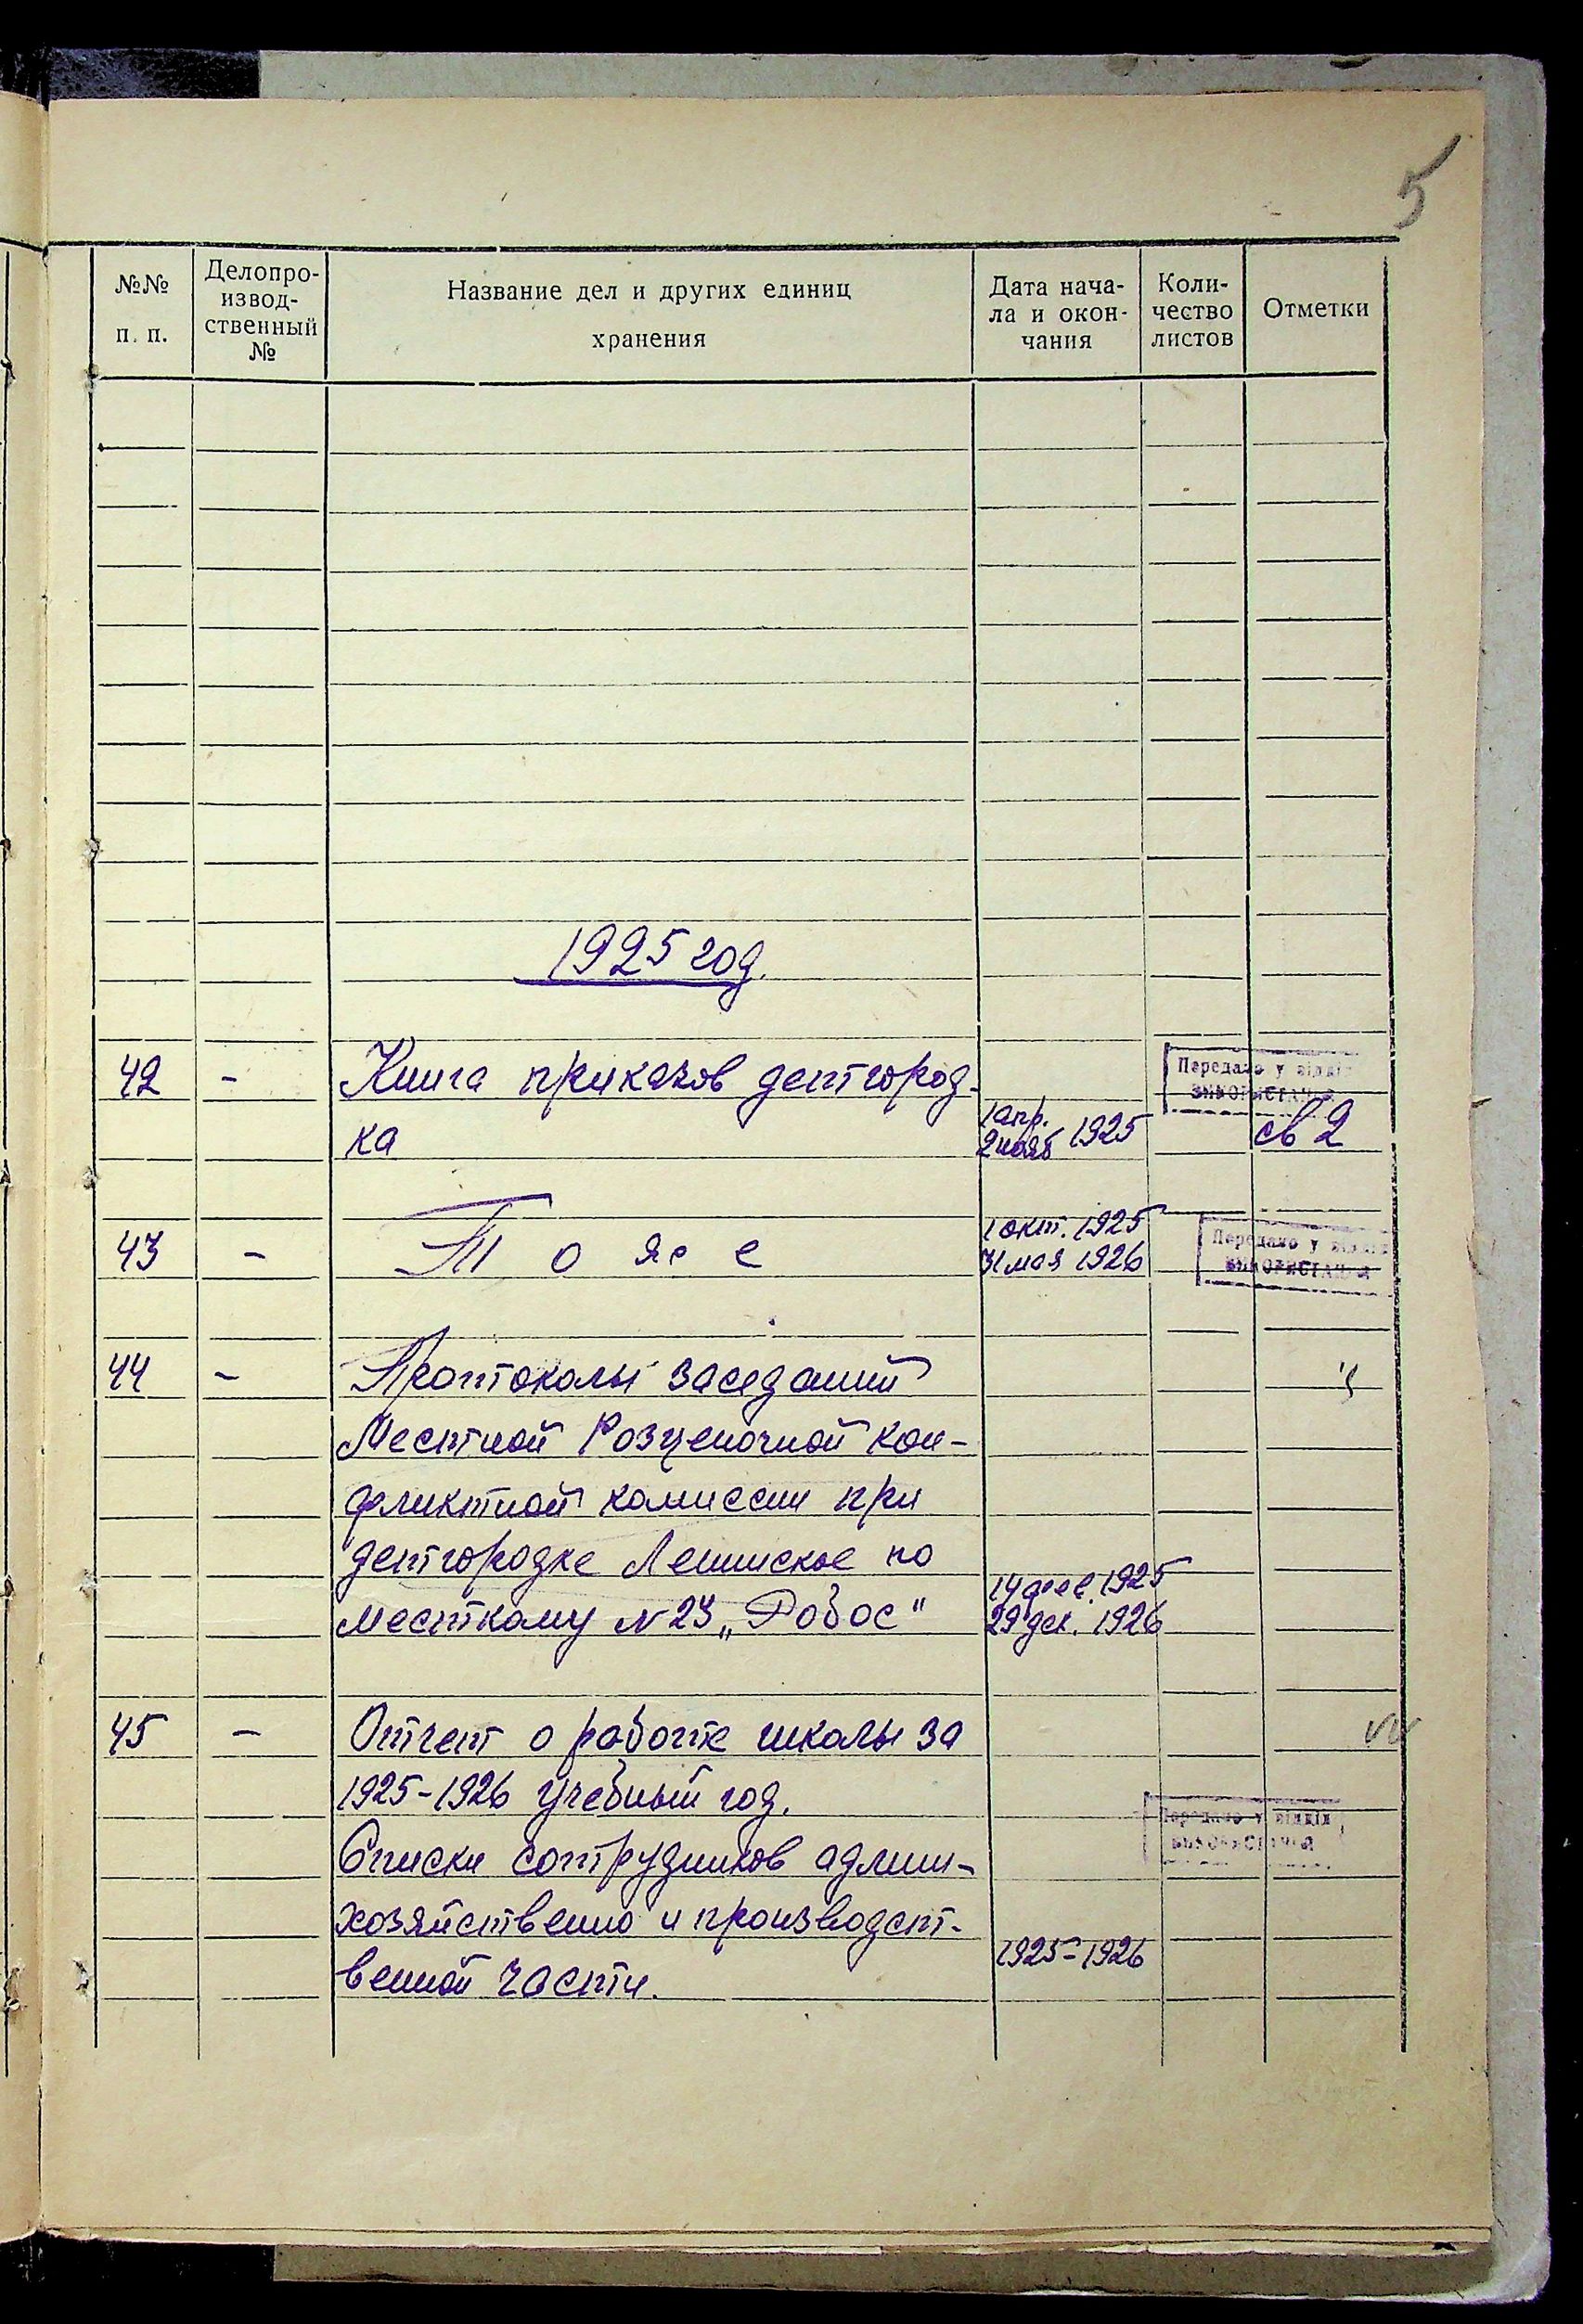 5
№№
п. п.
Делопро-
извод-
ственный
№
Название дел и других единиц
хранения
Дата нача-
ла и окон-
чания
Коли-
чество
листов
Отметки
1925 год.
42 - Книга приказов детгород-
ка
1 апр.
2 нояб 1925
Передано у відділ
використання
св 2
43 - Т о ж е
1 окт. 1925
31 мая 1926
Передано у відділ
використання
44 - Протоколы заседаний
Местной Розценочной кон-
фликтной комиссии при
детгородке Ленинское по
месткому N 23 „Робос"
14 1925
29 дек. 1926
45 - Отчет о работе школы за
1925-1926 учебный год.
Списки сотрудников админ-
хозяйственно и производст-
венной части.
1925-1926
Передано у відділ
використання